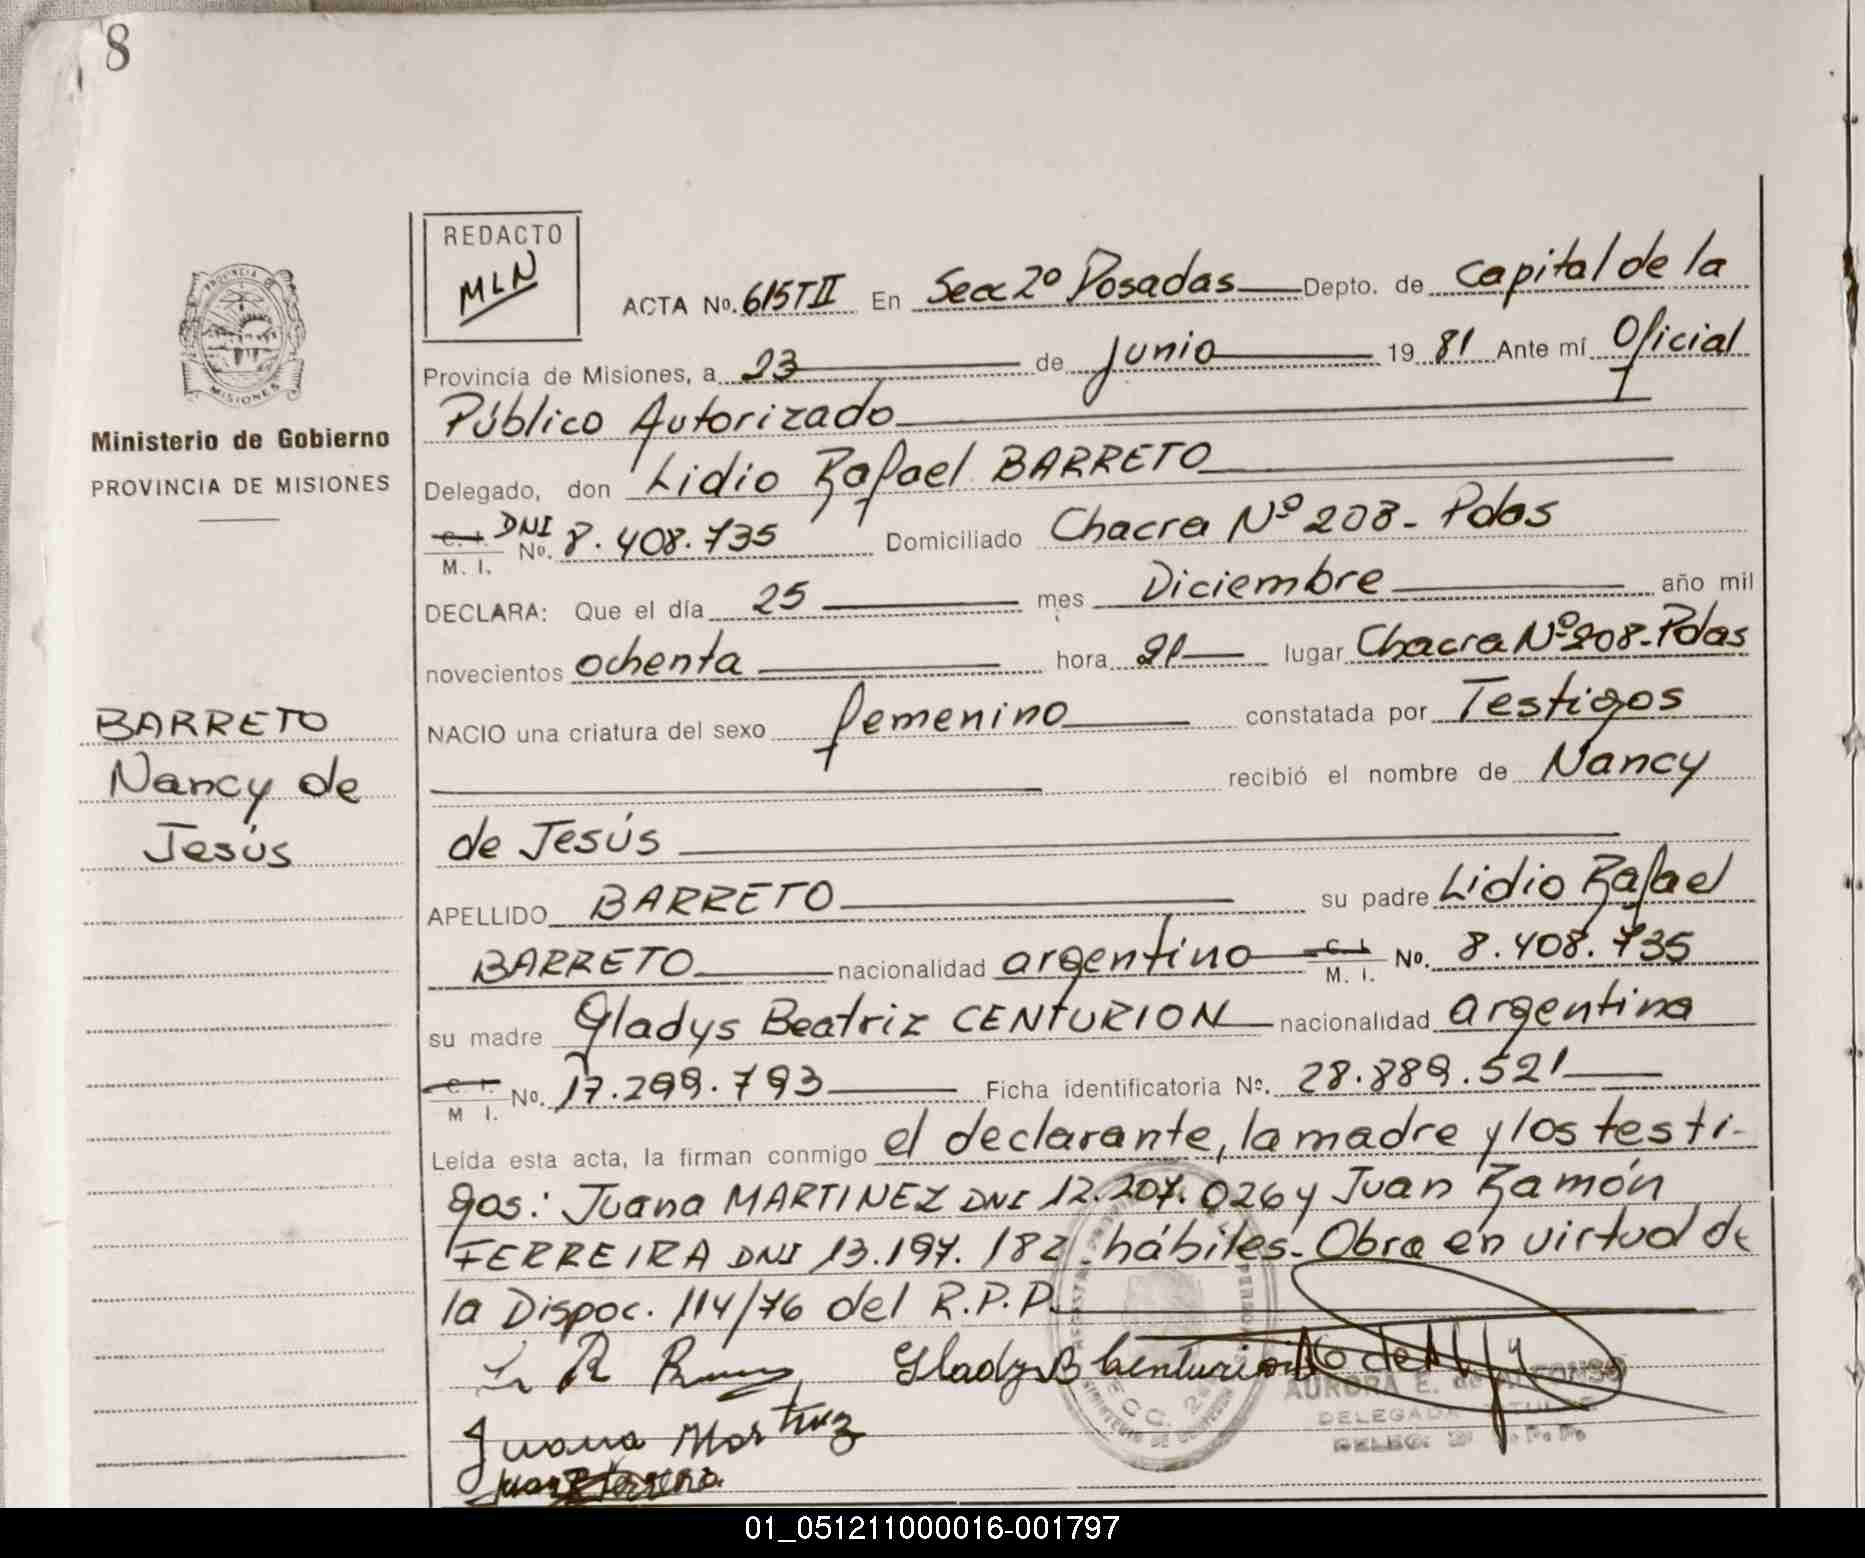 8
REDACTO
MLN
PROVINCIA DE
MISIONES
Ministerio de Gobierno
PROVINCIA DE MISIONES
ACTA No. 615TII En Secc 2º Posadas Depto. de Capital de la
Provincia de Misiones, a 23 de Junio 19 81 Ante mí Oficial
Público Autorizado
Delegado, don Lidio Rafael BARRETO
C. I. M. I. DNI No. 8.408.735 Domiciliado Chacra Nº 208- Pdas
DECLARA: Que el día 25 mes Diciembre año mil
novecientos ochenta hora 21 lugar Chacra Nº 208-Pdas
NACIO una criatura del sexo femenino constatada por Testigos
recibió el nombre de Nancy
de Jesús
BARRETO
Nancy de
Jesús
APELLIDO BARRETO su padre Lidio Rafael
BARRETO nacionalidad argentino C. I. M. I. No. 8.408.735
su madre Gladys Beatriz CENTURION nacionalidad argentina
C. I. M I. No. 17.299.793 Ficha identificatoria Nº. 28.889.521
Leída esta acta, la firman conmigo el declarante, la madre y los testi-
gos: Juana MARTINEZ DNI 12.207.026 y Juan Ramón
FERREIRA DNI 13.197.182 hábiles- Obra en virtud de
la Dispoc. 114/76 del R.P.P.
Gladys B Centurion
AURORA E. de ALFONSO
DELEGADA TITULAR
Juana Martinez
01_051211000016-001797